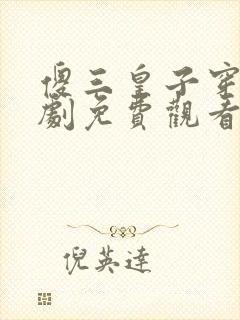 傻三皇子穿
劇免費觀看
倪英達